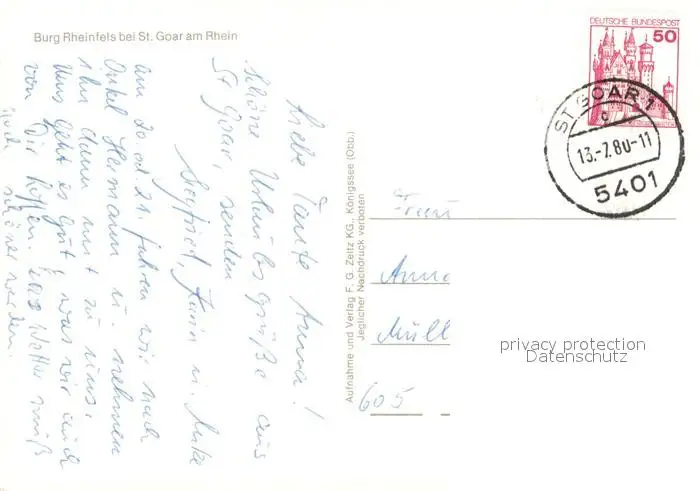 Burg Rheinfels bei St. Goar am Rhein
Liebe Tante Anna!
Schöne Urlaubsgrüße aus
St Goar, senden
Siegfried, Karin u. Anke
am 20. od 21. fahren wir nach
Onkel Hermann u. nehmen
ihn dann mit zu uns.
Uns geht es gut, was wir auch
von Dir hoffen. Das Wetter muß
noch schöner werden.
Aufnahme und Verlag F. G. Zeitz KG., Königssee (Obb.)
Jeglicher Nachdruck verboten
DEUTSCHE BUNDESPOST
50
ST GOAR 1
c
13.-7.80-11
5401
Frau
Anna
Müll
605
privacy protection
Datenschutz